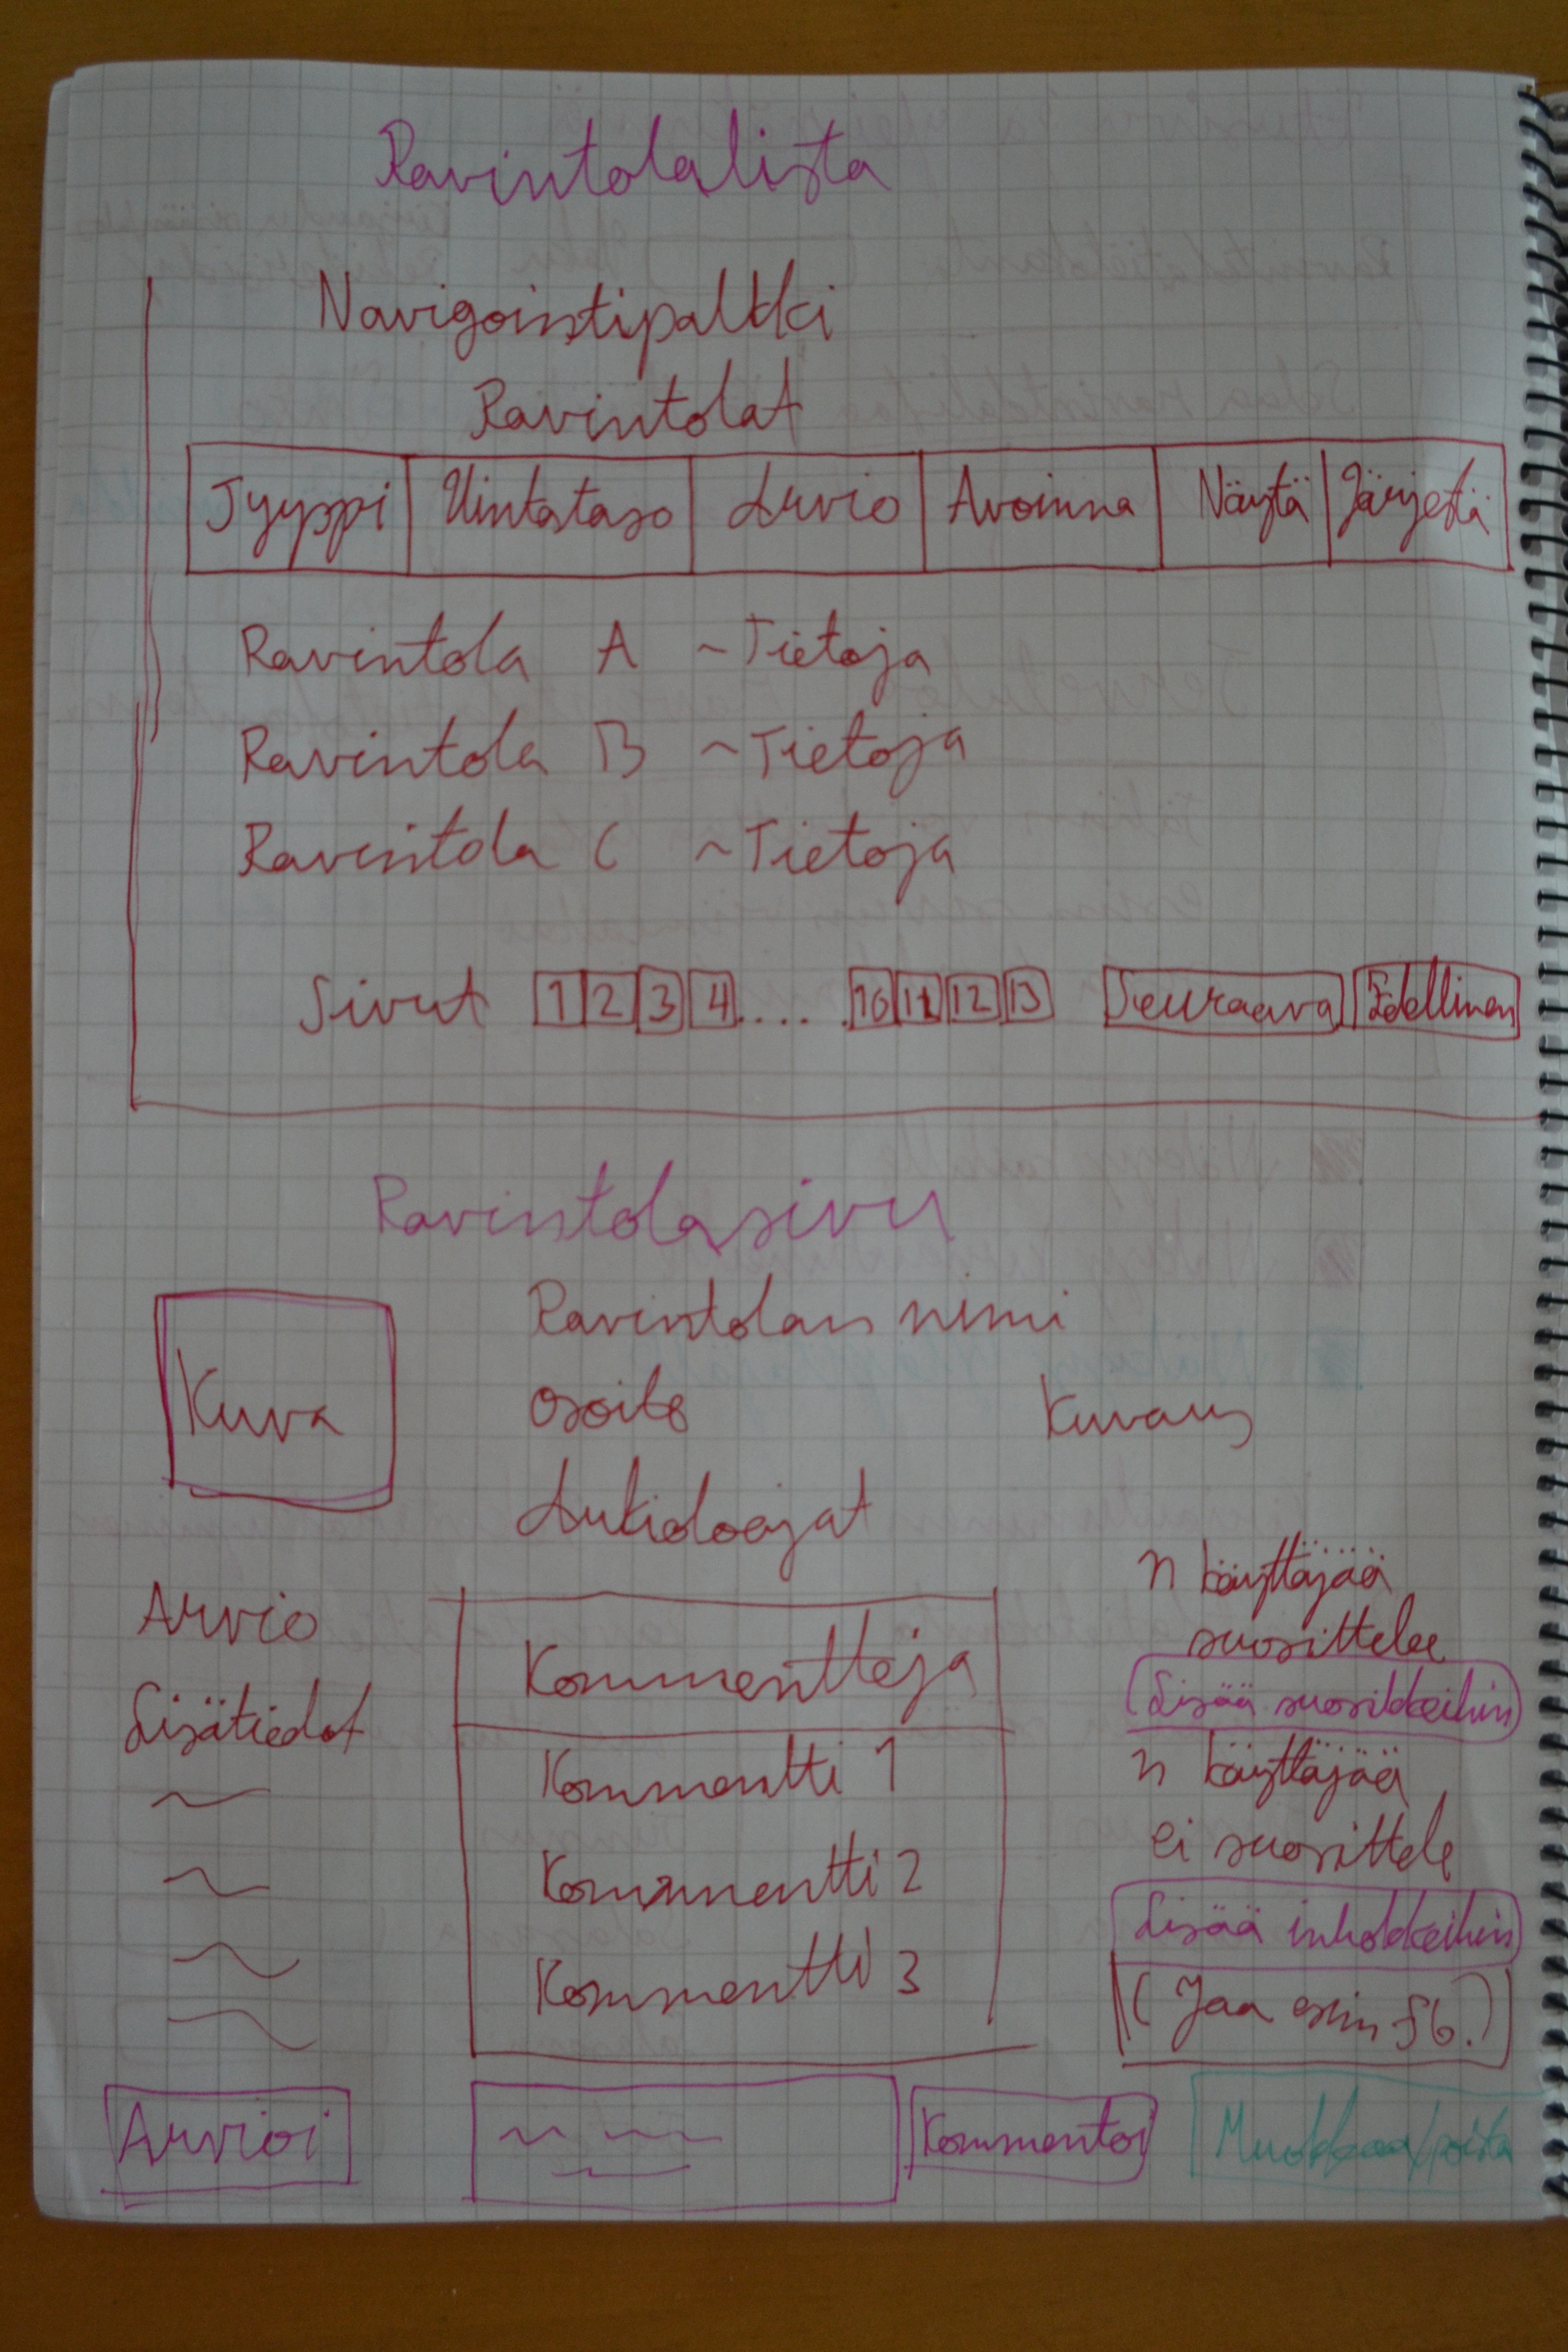 Ravintolalista
Navigointipalkki
Ravintolat
Tyyppi Hintataso Arvio Avoinna Näytä Järjestä
Ravintola A ~Tietoja
Ravintola B ~Tietoja
Ravintola C ~Tietoja
Sivut 1 2 3 4 ..... 10 11 12 13 Seuraava Edellinen
Ravintolasivu
Kuva
Ravintolan nimi
osoite
Kuvaus
Aukioloajat
Arvio
Lisätiedot
Kommentteja
Kommentti 1
Kommentti 2
Kommentti 3
n käyttäjää
suosittelee
Lisää suosikkeihin
n käyttäjää
ei suosittele
Lisää inhokkeihin
(Jaa esim fb.)
Arvioi
Kommentoi
Muokkaa/poista